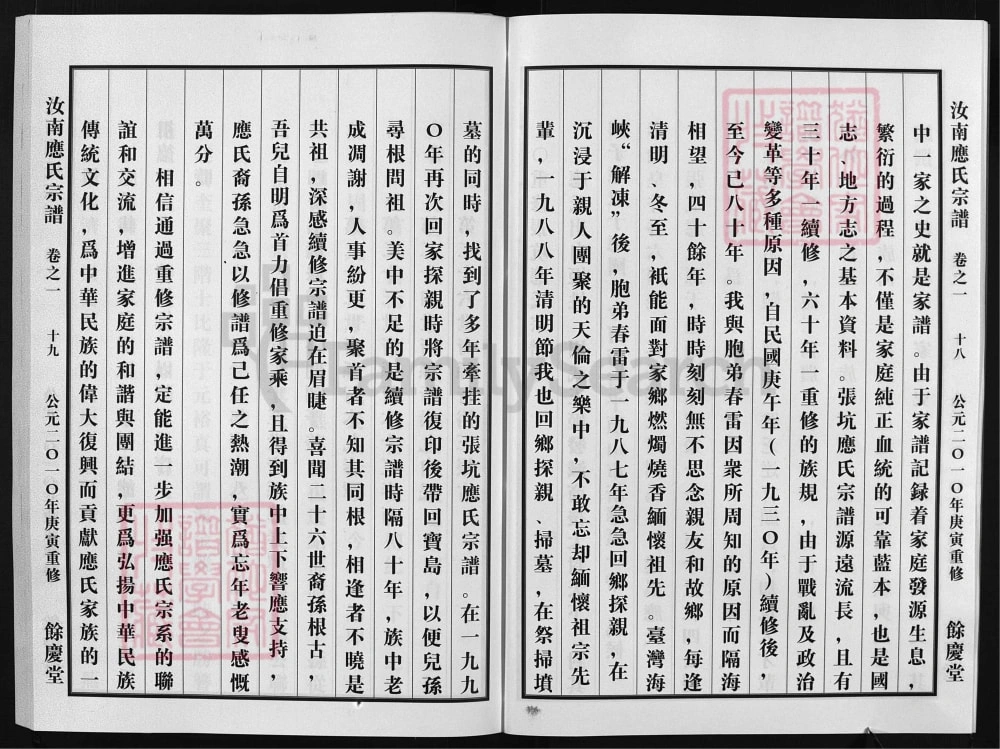 汝南應氏宗譜 卷之一 十八 公元二〇一〇年庚寅重修 餘慶堂
中一家之史就是家譜。由于家譜記録着家庭發源生息，
繁衍的過程，不僅是家庭純正血統的可靠藍本，也是國
志、地方志之基本資料。張坑應氏宗譜源遠流長，且有
三十年一續修，六十年一重修的族規，由于戰亂及政治
變革等多種原因，自民國庚午年（一九三〇年）續修後，
至今已八十年。我與胞弟春雷因衆所周知的原因而隔海
相望，四十餘年，時時刻刻無不思念親友和故鄉，每逢
清明、冬至，祇能面對家鄉燃燭燒香緬懷祖先。臺灣海
峽“解凍”後，胞弟春雷于一九八七年急急回鄉探親，在
沉浸于親人團聚的天倫之樂中，不敢忘却緬懷祖宗先
輩，一九八八年清明節我也回鄉探親、掃墓，在祭掃墳
墓的同時，找到了多年牽挂的張坑應氏宗譜。在一九九
〇年再次回家探親時將宗譜復印後帶回寶島，以便兒孫
尋根問祖。美中不足的是續修宗譜時隔八十年，族中老
成凋謝，人事紛更，聚首者不知其同根，相逢者不曉是
共祖，深感續修宗譜迫在眉睫。喜聞二十六世裔孫根古，
吾兒自明爲首力倡重修家乘，且得到族中上下響應支持，
應氏裔孫急急以修譜爲己任之熱潮，實爲忘年老叟感慨
萬分。
相信通過重修宗譜，定能進一步加强應氏宗系的聯
誼和交流，增進家庭的和諧與團結，更爲弘揚中華民族
傳統文化，爲中華民族的偉大復興而貢獻應氏家族的一
汝南應氏宗譜 卷之一 十九 公元二〇一〇年庚寅重修 餘慶堂
FamilySearch